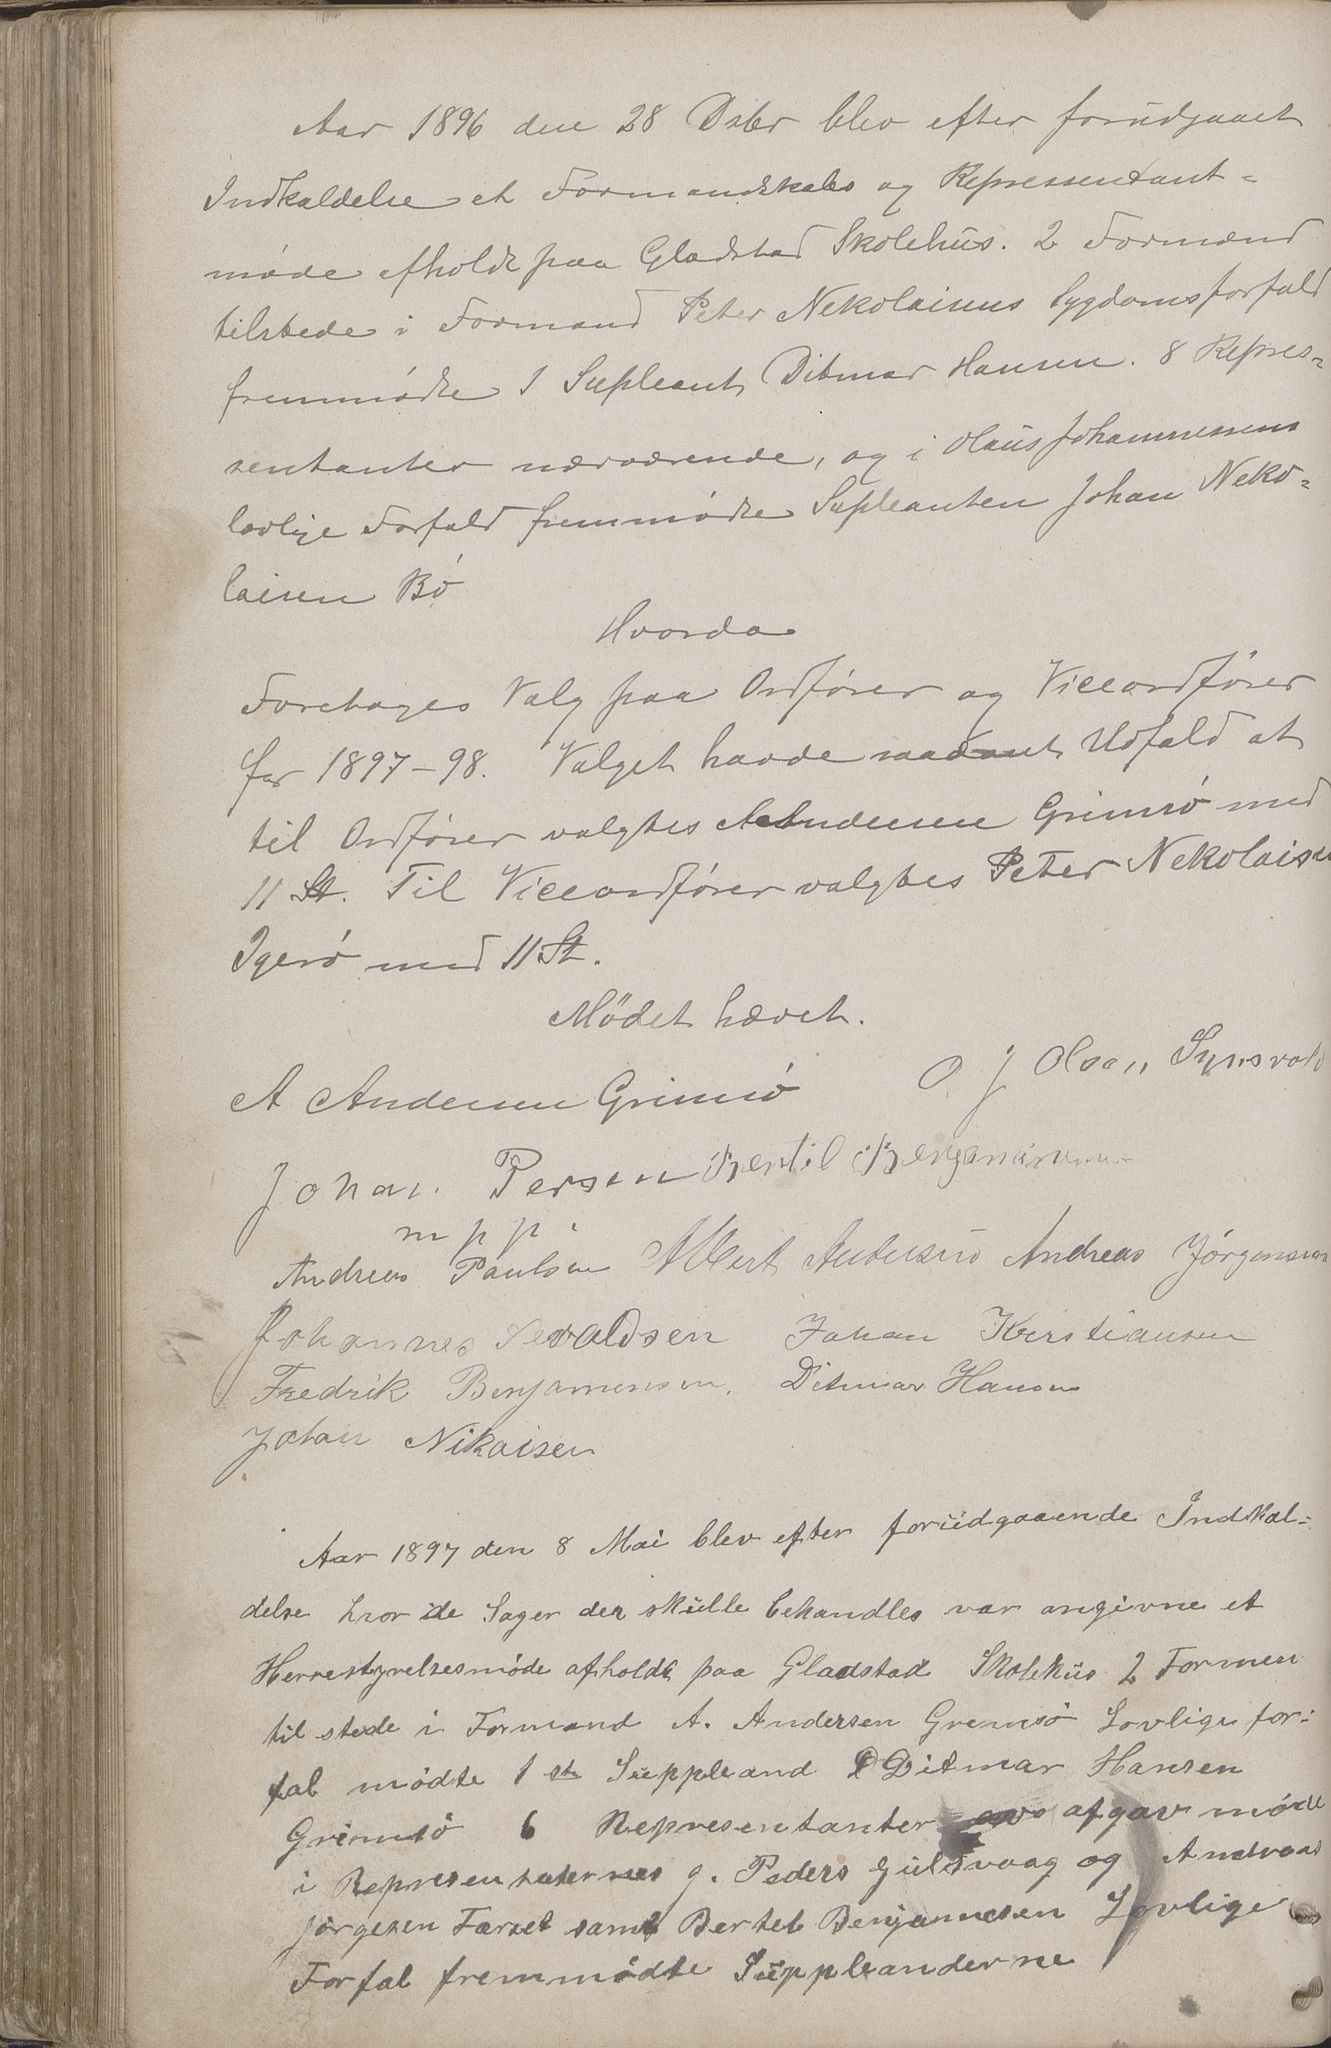 Aar 1896 den 28 Dsbr blev efter forudgaaet
Indkaldelse et Formandskabs og Repressentant-
møde afholdt paa Gladstad Skolehus. 2 Formænd
tilstede i Formand Peter Nekolaisens Sygdomsforfald
fremmødte 1 Supleant Ditmar Hansen. 8 Repres-
sentanter nærværende, og i Olaus Johannessens
lovlige Forfald fremmødte Supleanten Johan Neko-
laisen Bø
Hvorda
Foretoges Valg paa Ordfører og Viceordfører
for 1897-98. Valget havde saadant Udfald at
til Ordfører valgtes A Andersen Grimsø med
11 St. Til Viceordfører valgtes Peter Nekolaisen
Igerø med 11 St.
Mödet hævet.
A Andersen Grimsø O J Olsen
Johan Persen Bertil Benjaminsen
m p p
Andreas Paulsen Albert Andreas Jörgensen
Johannes Sevaldsen Johan Kristiansen
Fredrik Benjamensen. Ditmar Hansen
Johan Nikaisen
Aar 1897 den 8 Mai blev efter forudgaaende Indkal-
delse hvor de Sager der skulle behandles var angivne et
Herrestyrelsesmöde afholdt paa Gladstad Skolehus 2 Formen
til stede i Formand A. Andersen Gremsö Lovlige for-
fal mödte 1 ste Suppleand Ditmar Hansen
Grimsö 6 Representanter afgav möde
i Representaternes g. Peders Gulsvaag og Andreas
Jörgesen Færset samt Bertel Benjamesen Lovlige
Forfal fremmödte Suppleanderne